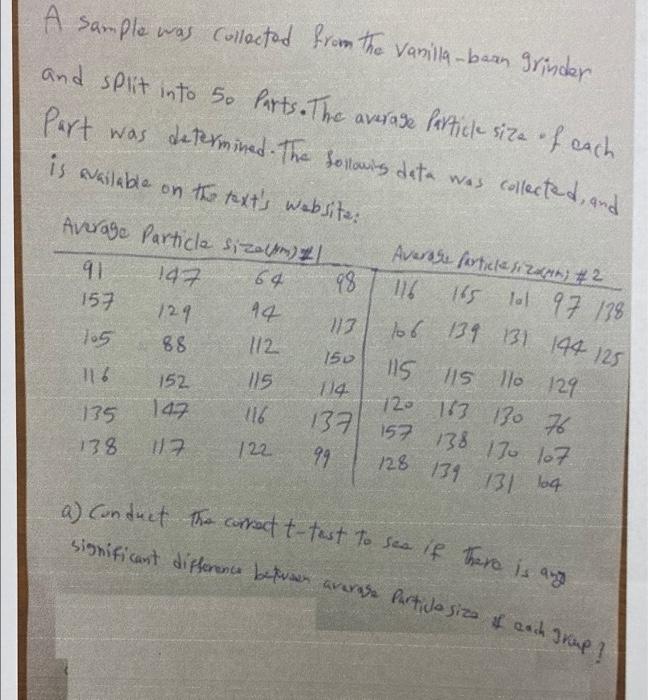 A sample was collected from the vanilla-bean grinder
and split into 50 Parts. The average Particle size of each
Part was determined. The following data was collected, and
is available on the text's website:
Average Particle size(µm) #1 Average Particle size(µm) #2
91 147 64 98 116 165 101 97 138
157 129 94 113 106 139 131 144 125
105 88 112 150 115 115 110 129
116 152 115 114 120 163 130 76
135 147 116 137 157 138 130 107
138 117 122 99 128 139 131 104
a) Conduct the correct t-test to see if there is any
significant difference between average Particle size of each group?